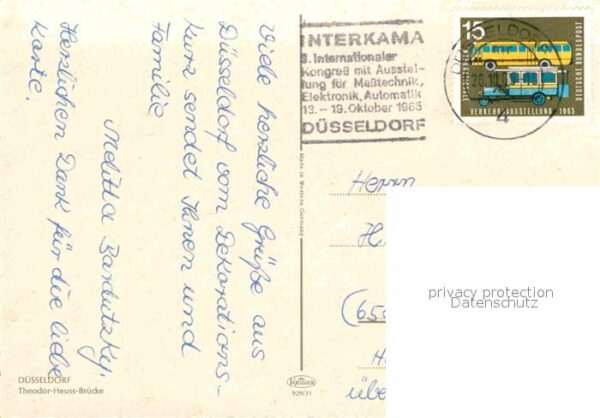 INTERKAMA
3. Internationaler
Kongreß mit Ausstel-
lung für Meßtechnik,
Elektronik, Automatik
13. - 19. Oktober 1965
DÜSSELDORF
15
DEUTSCHE BUNDESPOST
VERKEHRSAUSSTELLUNG 1965
DÜSSELDORF
4
Viele herzliche Grüße aus
Düsseldorf vom Dekorations-
kurs sendet Ihnen und
Familie
Melitta Bardutzky.
Herzlichen Dank für die liebe
Karte.
Made in Western Germany
Herrn
H.
(65
H
übe
privacy protection
Datenschutz
DÜSSELDORF
Theodor-Heuss-Brücke
Krüger
929/31